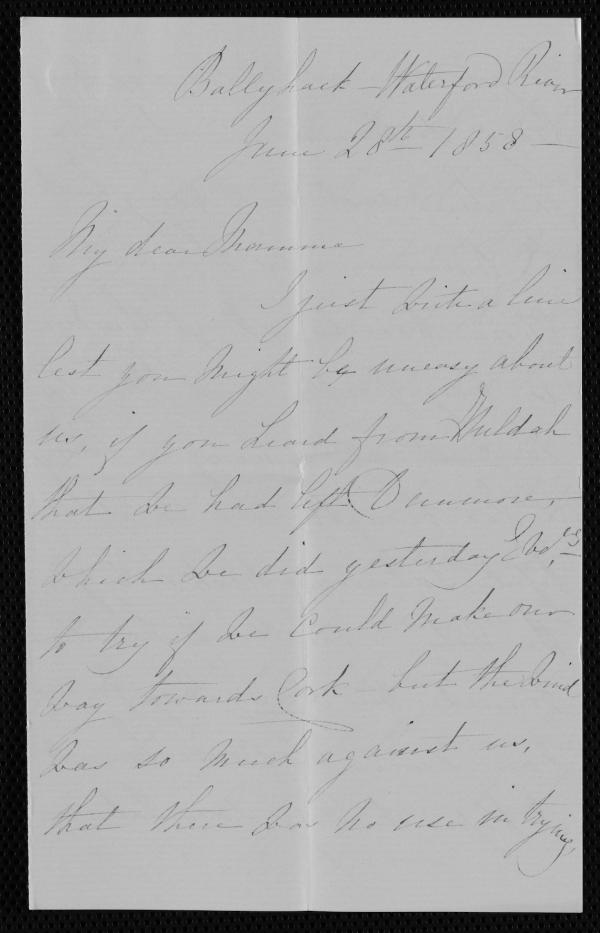 Ballyhack - Waterford River
June 28th 1858 -
My dear Mamma
I just write a line
lest you might be uneasy about
us, if you heard from Huldah
that we had left Dunmore,
which we did yesterday
to try if we could make our
way towards Cork - but the wind
was so much against us,
that there was no use in trying,